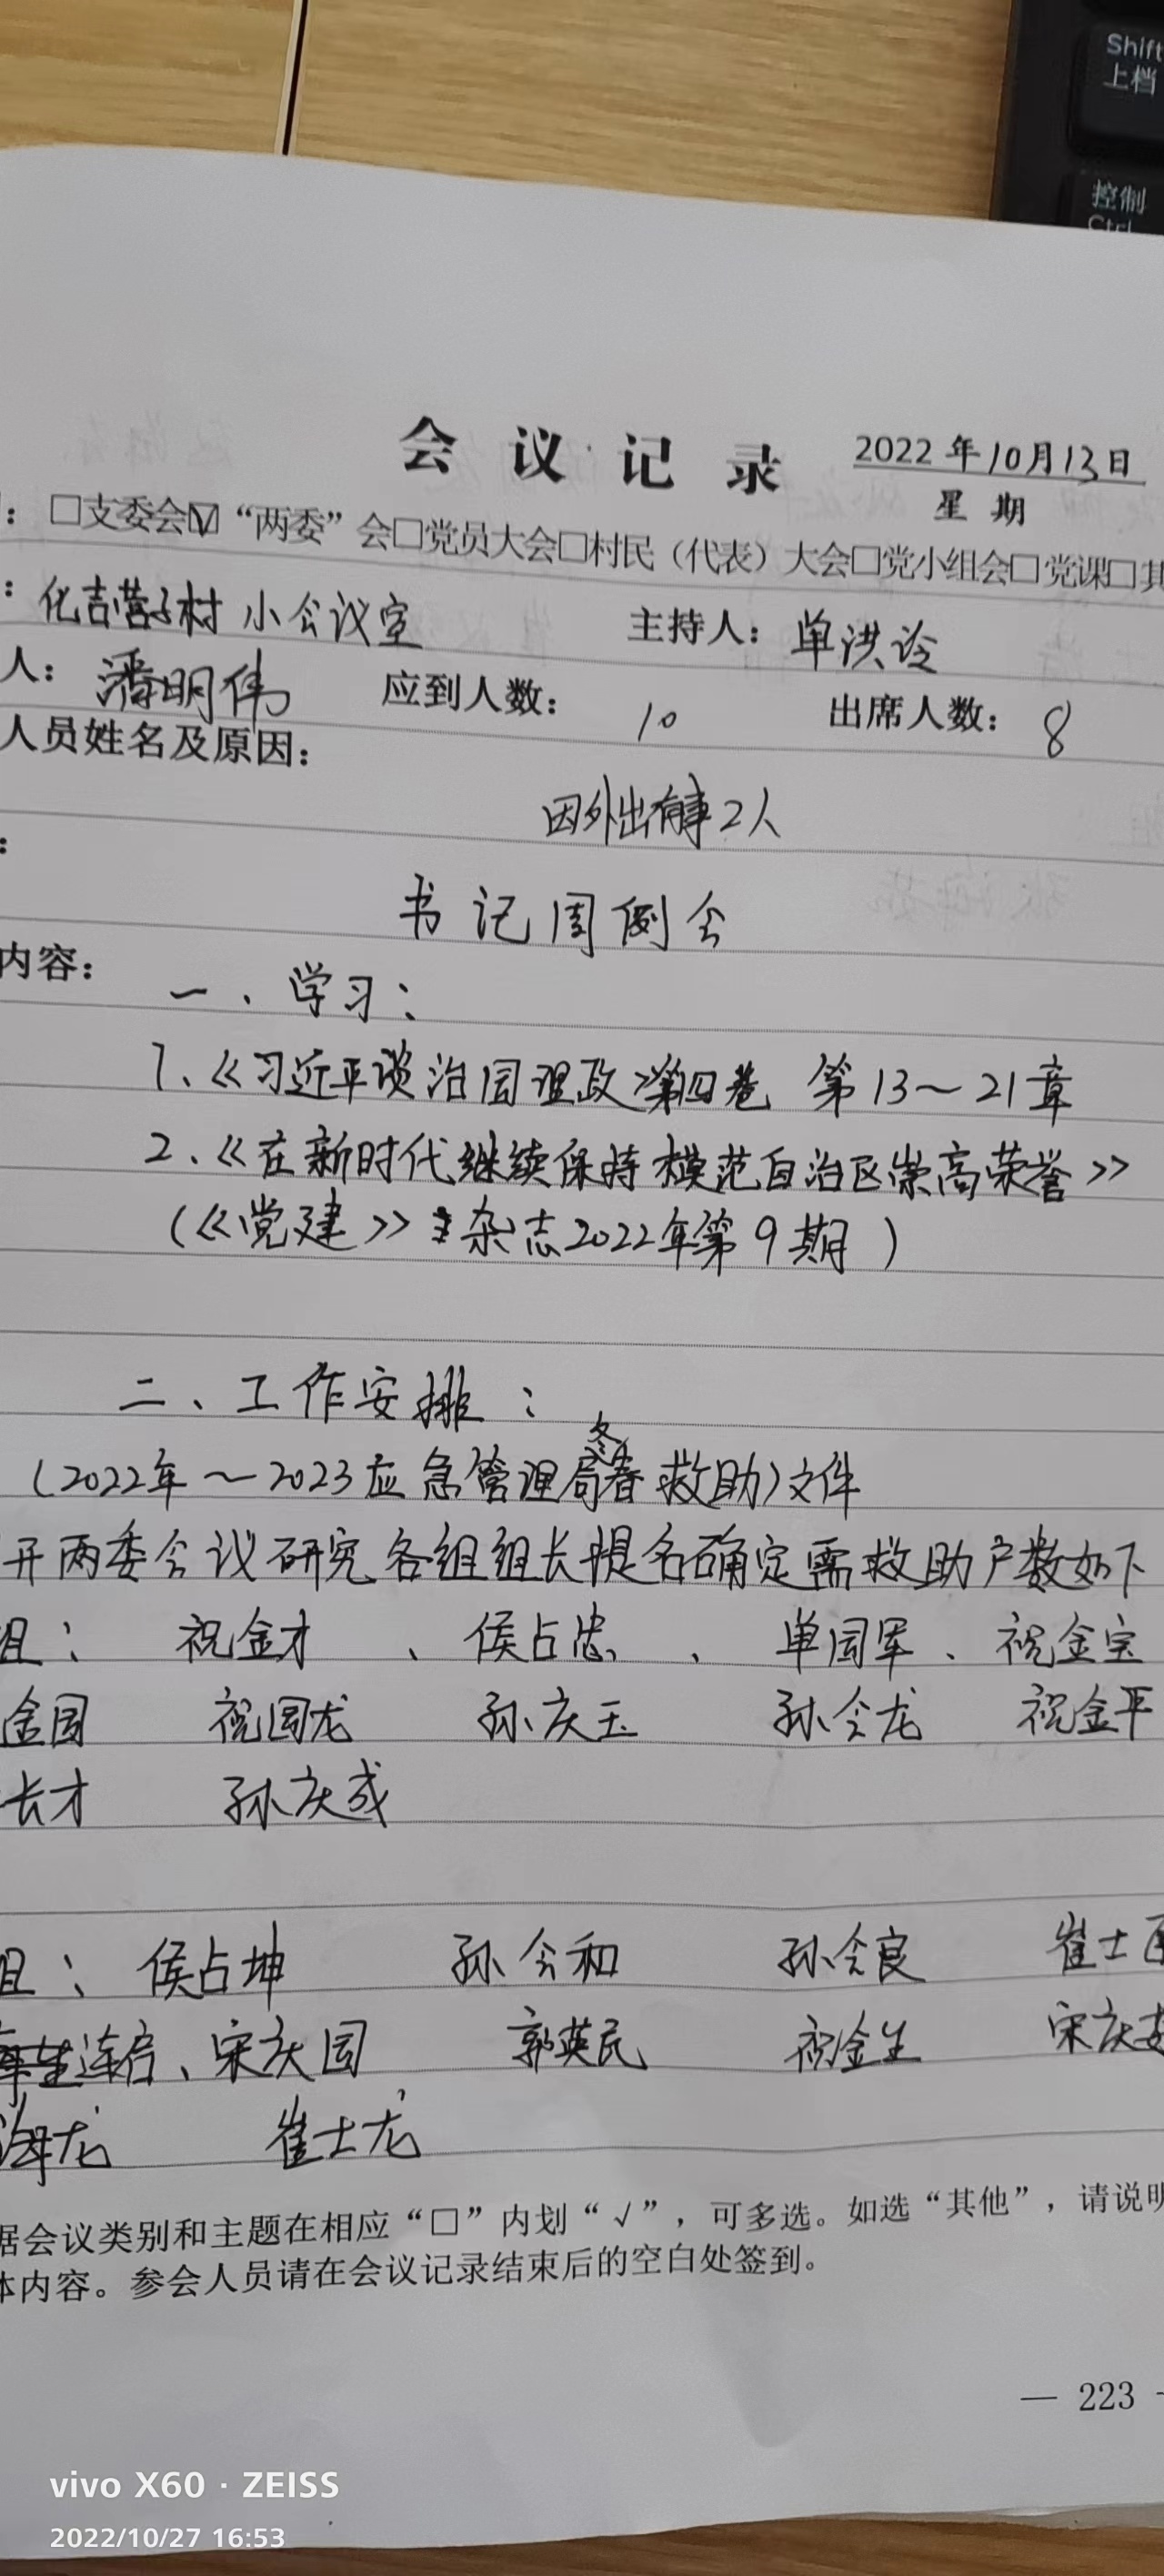 Shift
上档
控制
Ctrl
会议记录 2022年10月13日
星期
：□支委会☑“两委”会□党员大会□村民（代表）大会□党小组会□党课□其
：化吉营子村 小会议室 主持人：单洪玲
人：潘明伟 应到人数：10 出席人数：8
人员姓名及原因：
因外出有事2人
：
书记周例会
内容：
一、学习：
1、《习近平谈治国理政》第四卷 第13～21章
2、《在新时代继续保持模范自治区崇高荣誉》
（《党建》杂志2022年第9期）
二、工作安排：
（2022年～2023应急管理局冬春救助）文件
开两委会议研究各组组长提名确定需救助户数如下
组： 祝金才 、侯占忠 、 单国军、祝金宝
金国 祝国龙 孙庆玉 孙令龙 祝金平
长才 孙庆成
组：侯占坤 孙令和 孙令良 崔士
连启、宋庆国 郭英民 祝金生 宋庆
海龙 崔士龙
据会议类别和主题在相应“□”内划“√”，可多选。如选“其他”，请说明
体内容。参会人员请在会议记录结束后的空白处签到。
— 223
vivo X60 · ZEISS
2022/10/27 16:53